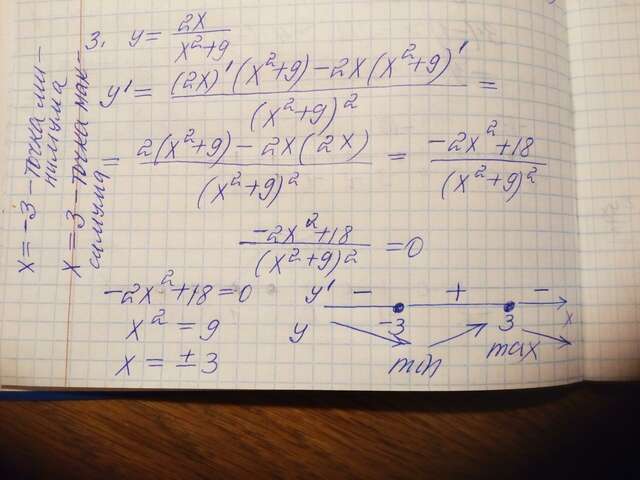 3. y = 2x / (x²+9)
y' = ((2x)'(x²+9) - 2x(x²+9)') / (x²+9)² =
= (2(x²+9) - 2x(2x)) / (x²+9)² = (-2x²+18) / (x²+9)²
(-2x²+18) / (x²+9)² = 0
-2x²+18=0
x² = 9
x = ±3
y' - + -
-3 3 x
y min max
x = -3 - точка ми-
нимума
x = 3 - точка мак-
симума